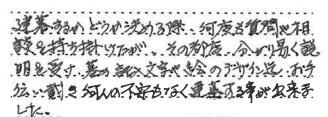 建墓するかどうか決める際、何度も質問や相
談を持ち掛けたが、その都度、分かり易く説
明を受け、墓の記入文字や絵のデザイン迄、お手
伝い戴き何んの不安もなく建墓する事が出来ま
した。